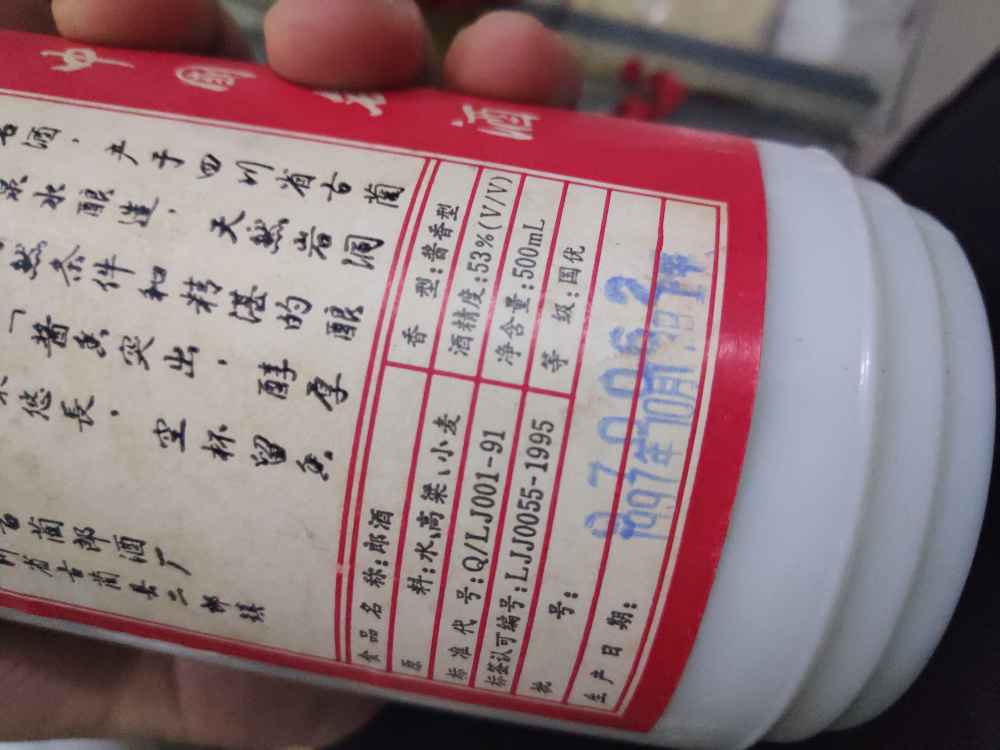 中國名酒
酒，产于四川省古蔺
泉水酿造，天然岩洞
然条件和精湛的酿
「酱香突出，醇厚
悠長，空杯留香
古蔺郎酒厂
省古蔺县二郎镇
食品名称:郎酒
香型:酱香型
原料:水、高粱、小麦
酒精度:53%(V/V)
标准代号:Q/LJ001-91
净含量:500mL
标签认可编号:LJJ0055-1995
等级:国优
批号:
生产日期:
1997年10月